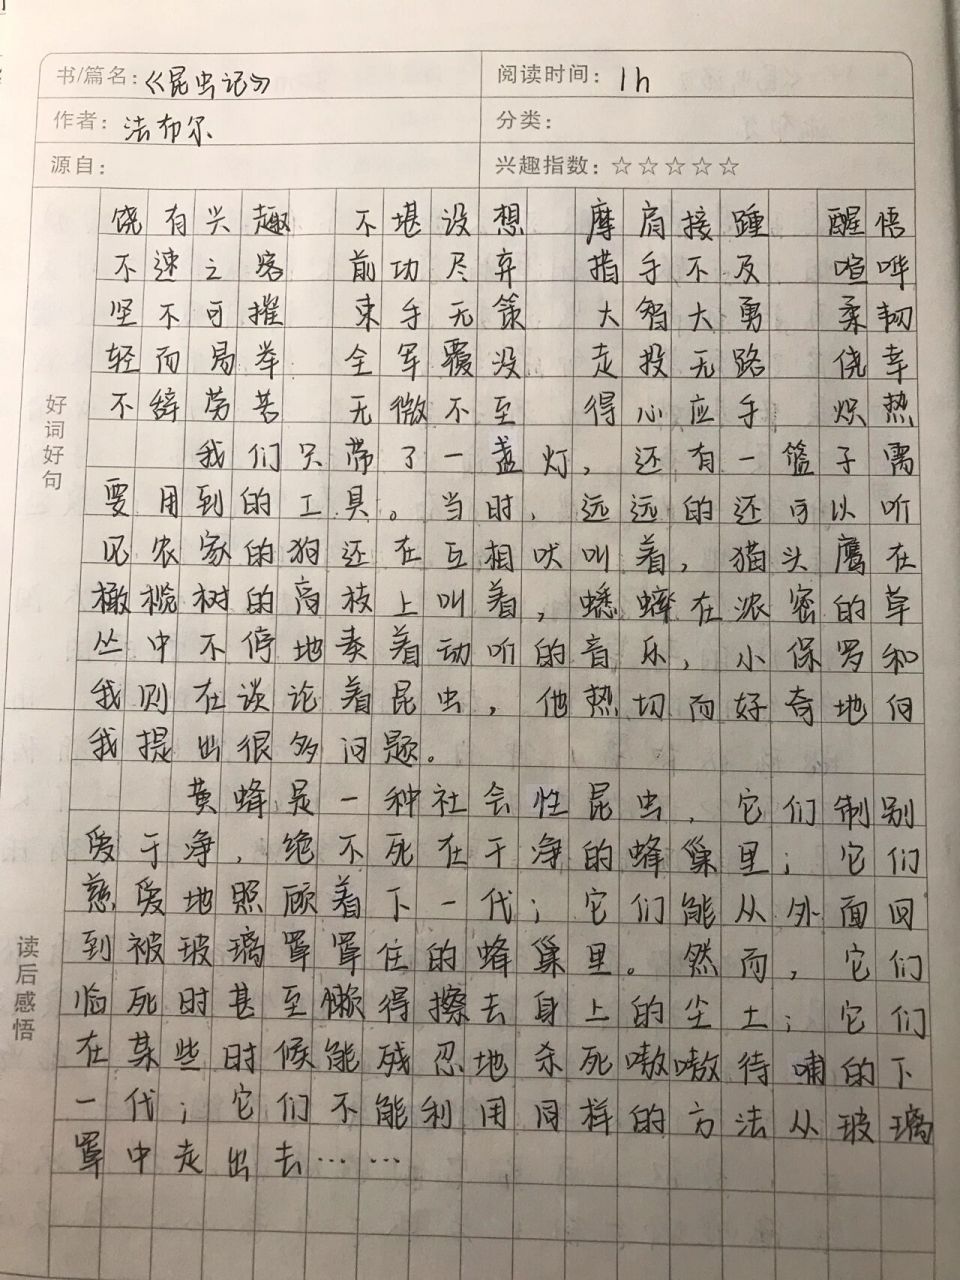 书/篇名：《昆虫记》 阅读时间：1h
作者：法布尔 分类：
源自： 兴趣指数：☆☆☆☆☆
饶有兴趣 不堪设想 摩肩接踵 醒悟
不速之客 前功尽弃 措手不及 喧哗
坚不可摧 束手无策 大智大勇 柔韧
轻而易举 全军覆没 走投无路 侥幸
不辞劳苦 无微不至 得心应手 炽热
好词好句
我们只带了一盏灯，还有一篮子需
要用到的工具。当时，远远的还可以听
见农家的狗还在互相吠叫着，猫头鹰在
橄榄树的高枝上叫着，蟋蟀在浓密的草
丛中不停地奏着动听的音乐，小保罗和
我则在谈论着昆虫，他热切而好奇地向
我提出很多问题。
黄蜂是一种社会性昆虫，它们制别
爱干净，绝不死在干净的蜂巢里；它们
慈爱地照顾着下一代；它们能从外面回
到被玻璃罩罩住的蜂巢里。然而，它们
读后感悟
临死时甚至懒得擦去身上的尘土；它们
在某些时候能残忍地杀死嗷嗷待哺的下
一代；它们不能利用同样的方法从玻璃
罩中走出去……